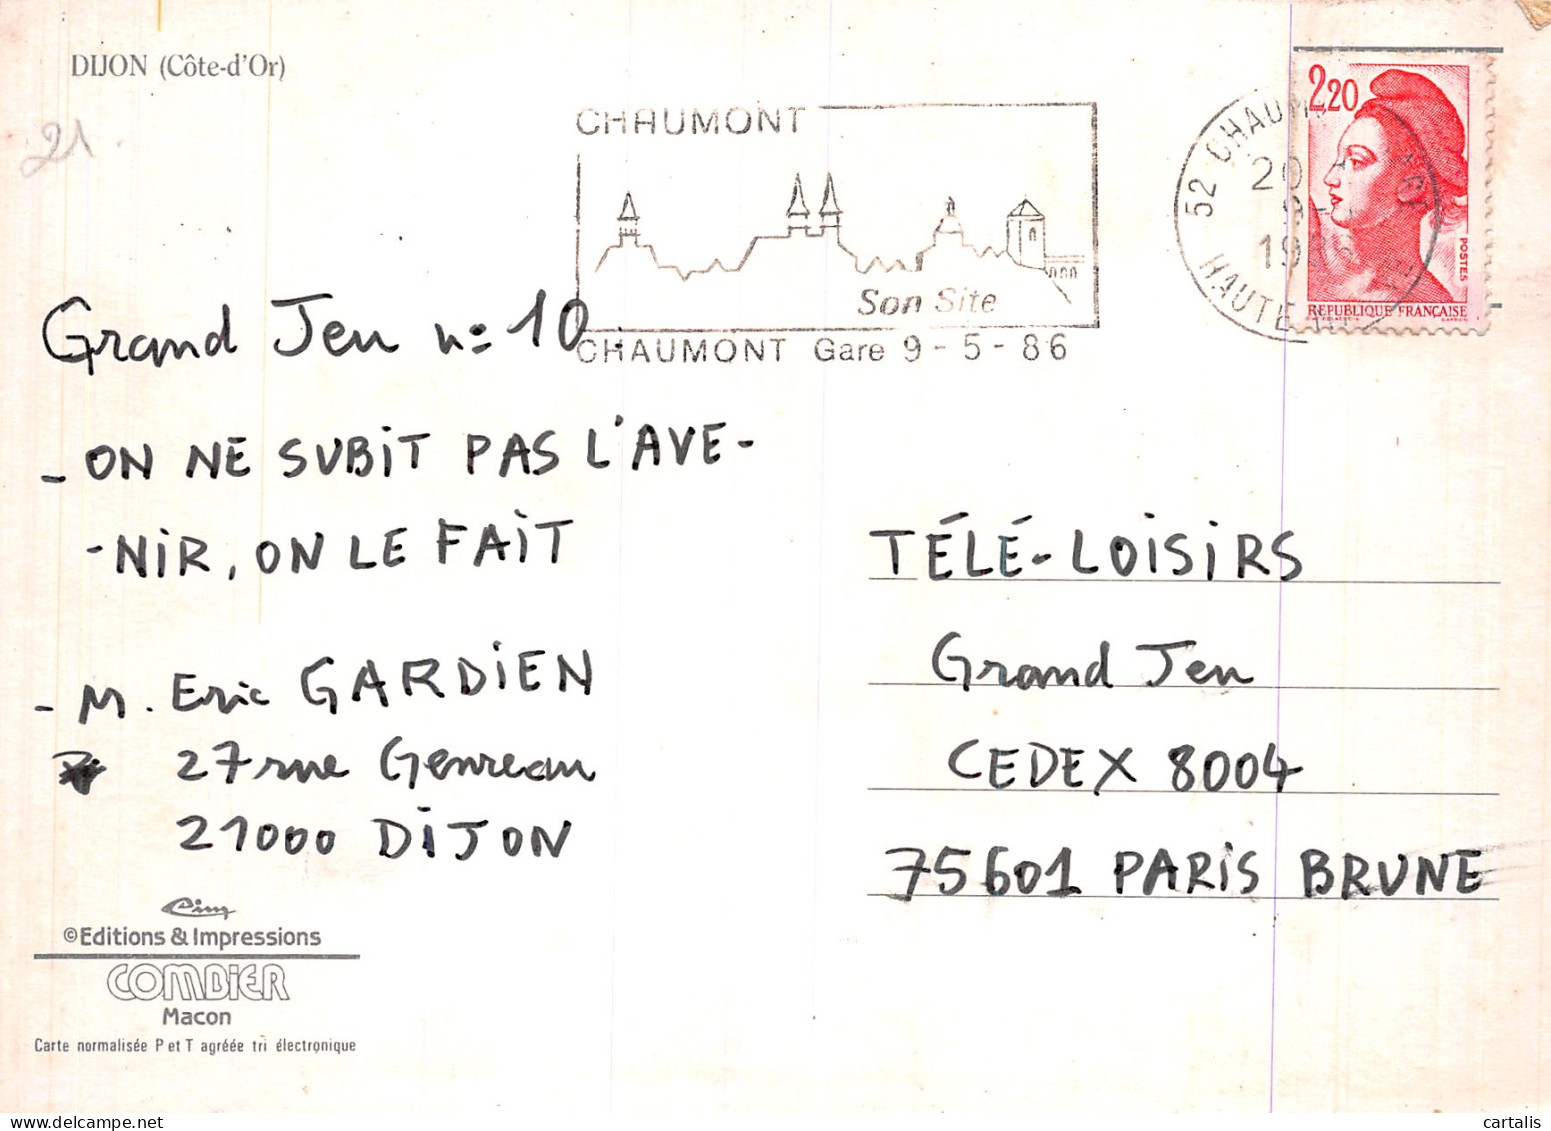 DIJON (Côte-d'Or)
21.
CHAUMONT
Son Site
CHAUMONT Gare 9 - 5 - 86
52 CHAUM
20
9-
19
HAUTE
2,20
POSTES
REPUBLIQUE FRANÇAISE
Grand Jeu n: 10.
- ON NE SUBIT PAS L'AVE-
-NIR, ON LE FAIT
- M. Eric GARDIEN
27 rue Genreau
21000 DIJON
TÉLÉ-LOISIRS
Grand Jeu
CEDEX 8004
75601 PARIS BRUNE
Cim
©Editions & Impressions
COMBIER
Macon
Carte normalisée P et T agréée tri électronique
www.delcampe.net
cartalis